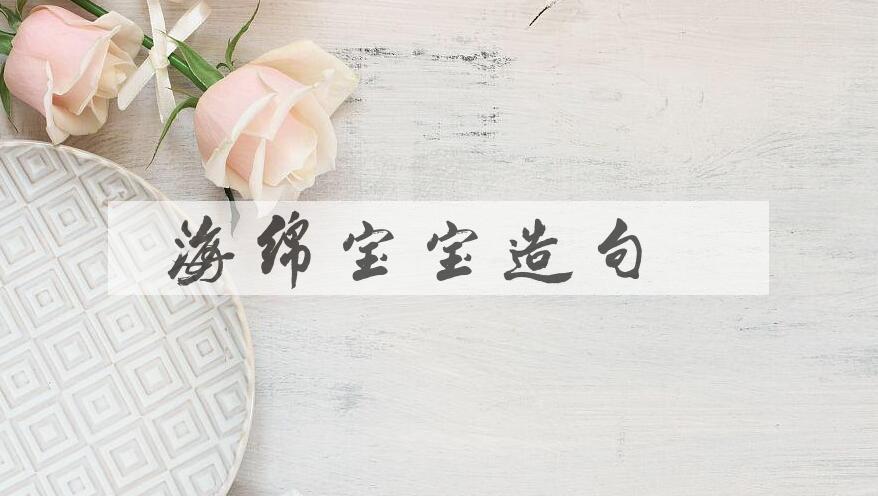 海绵宝宝造句